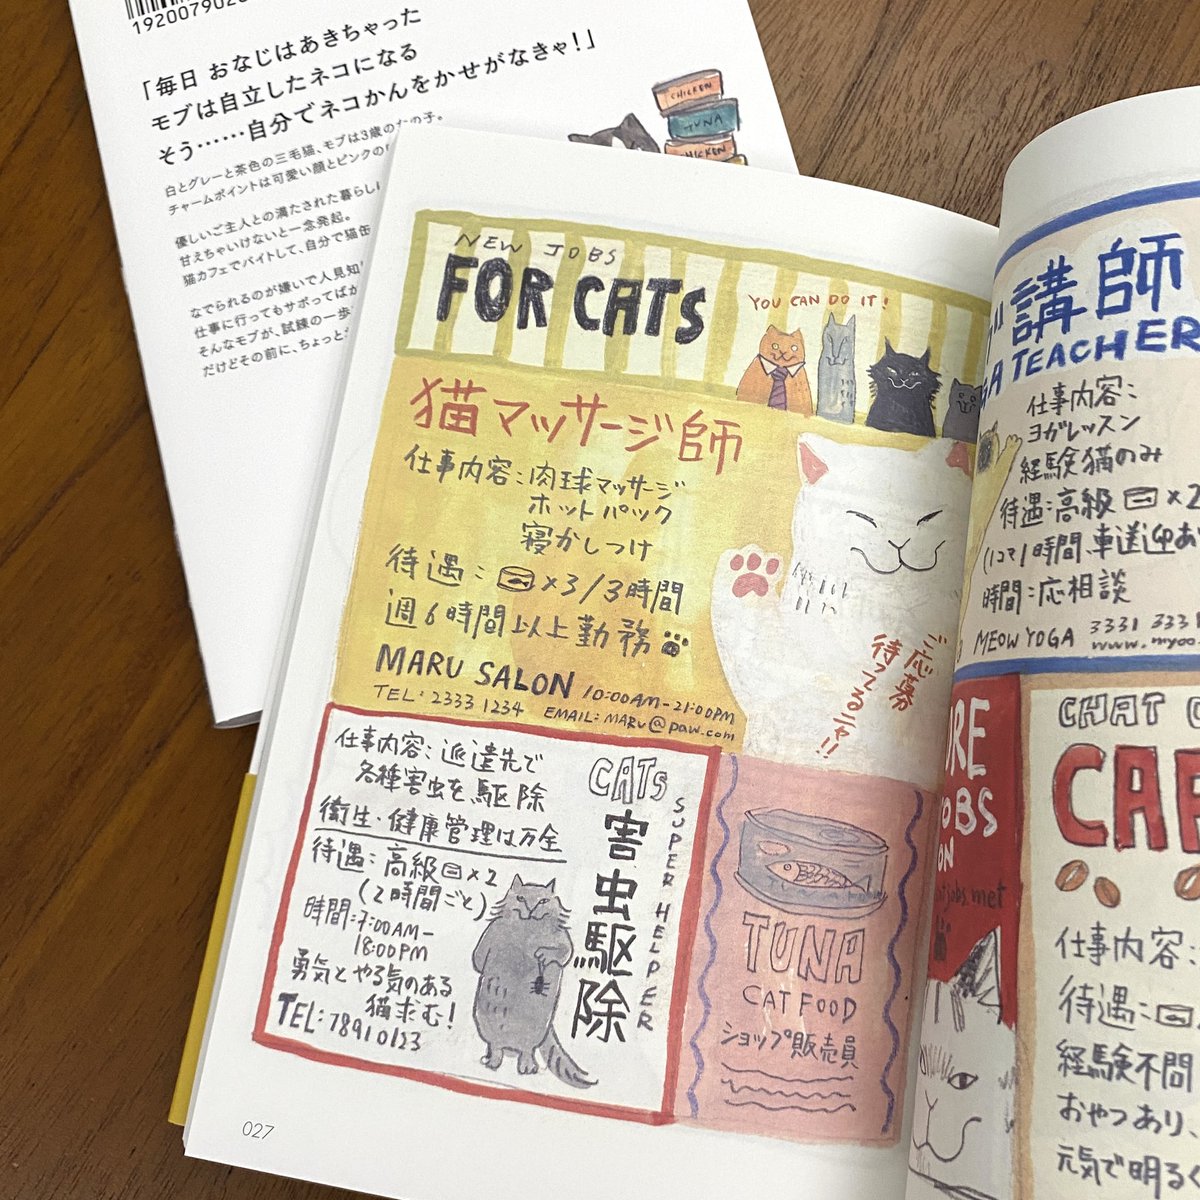 「毎日 おなじはあきちゃった
モブは自立したネコになる
そう……自分でネコかんをかせがなきゃ!」
白とグレーと茶色の三毛猫、モブは3歳の女の子。
チャームポイントは可愛い顔とピンクの
優しいご主人との満たされた暮らし
甘えちゃいけないと一念発起。
猫カフェでバイトして、自分で猫缶
なでられるのが嫌いで人見知
仕事に行ってもサボってばか
そんなモブが、試練の一歩
だけどその前に、ちょっと
CHICKEN
TUNA
CHICKEN
NEW JOBS
FOR CATS
YOU CAN DO IT!
猫マッサージ師
仕事内容:肉球マッサージ
ホットパック
寝かしつけ
待遇: ×3/3時間
週6時間以上勤務
MARU SALON 10:00AM-21:00PM
TEL:2333 1234 EMAIL:MARU@paw.com
ご応募
待ってるニャ!!
仕事内容:派遣先で
各種害虫を駆除
衛生・健康管理は万全
待遇:高級 ×2
(2時間ごと)
時間:7:00AM-
18:00PM
勇気とやる気のある
猫求む!
TEL:7891 0123
CATS
害虫駆除
SUPER HELPER
TUNA
CAT FOOD
ショップ販売員
027
講師
TEACHER
仕事内容:
ヨガレッスン
経験猫のみ
待遇:高級 ×2
(1コマ1時間、車送迎あ
時間:応相談
MEOW YOGA 3331 3331
JOBS
ON
CHAT
仕事内容:
待遇:
経験不問
おやつあり、
元気で明るく